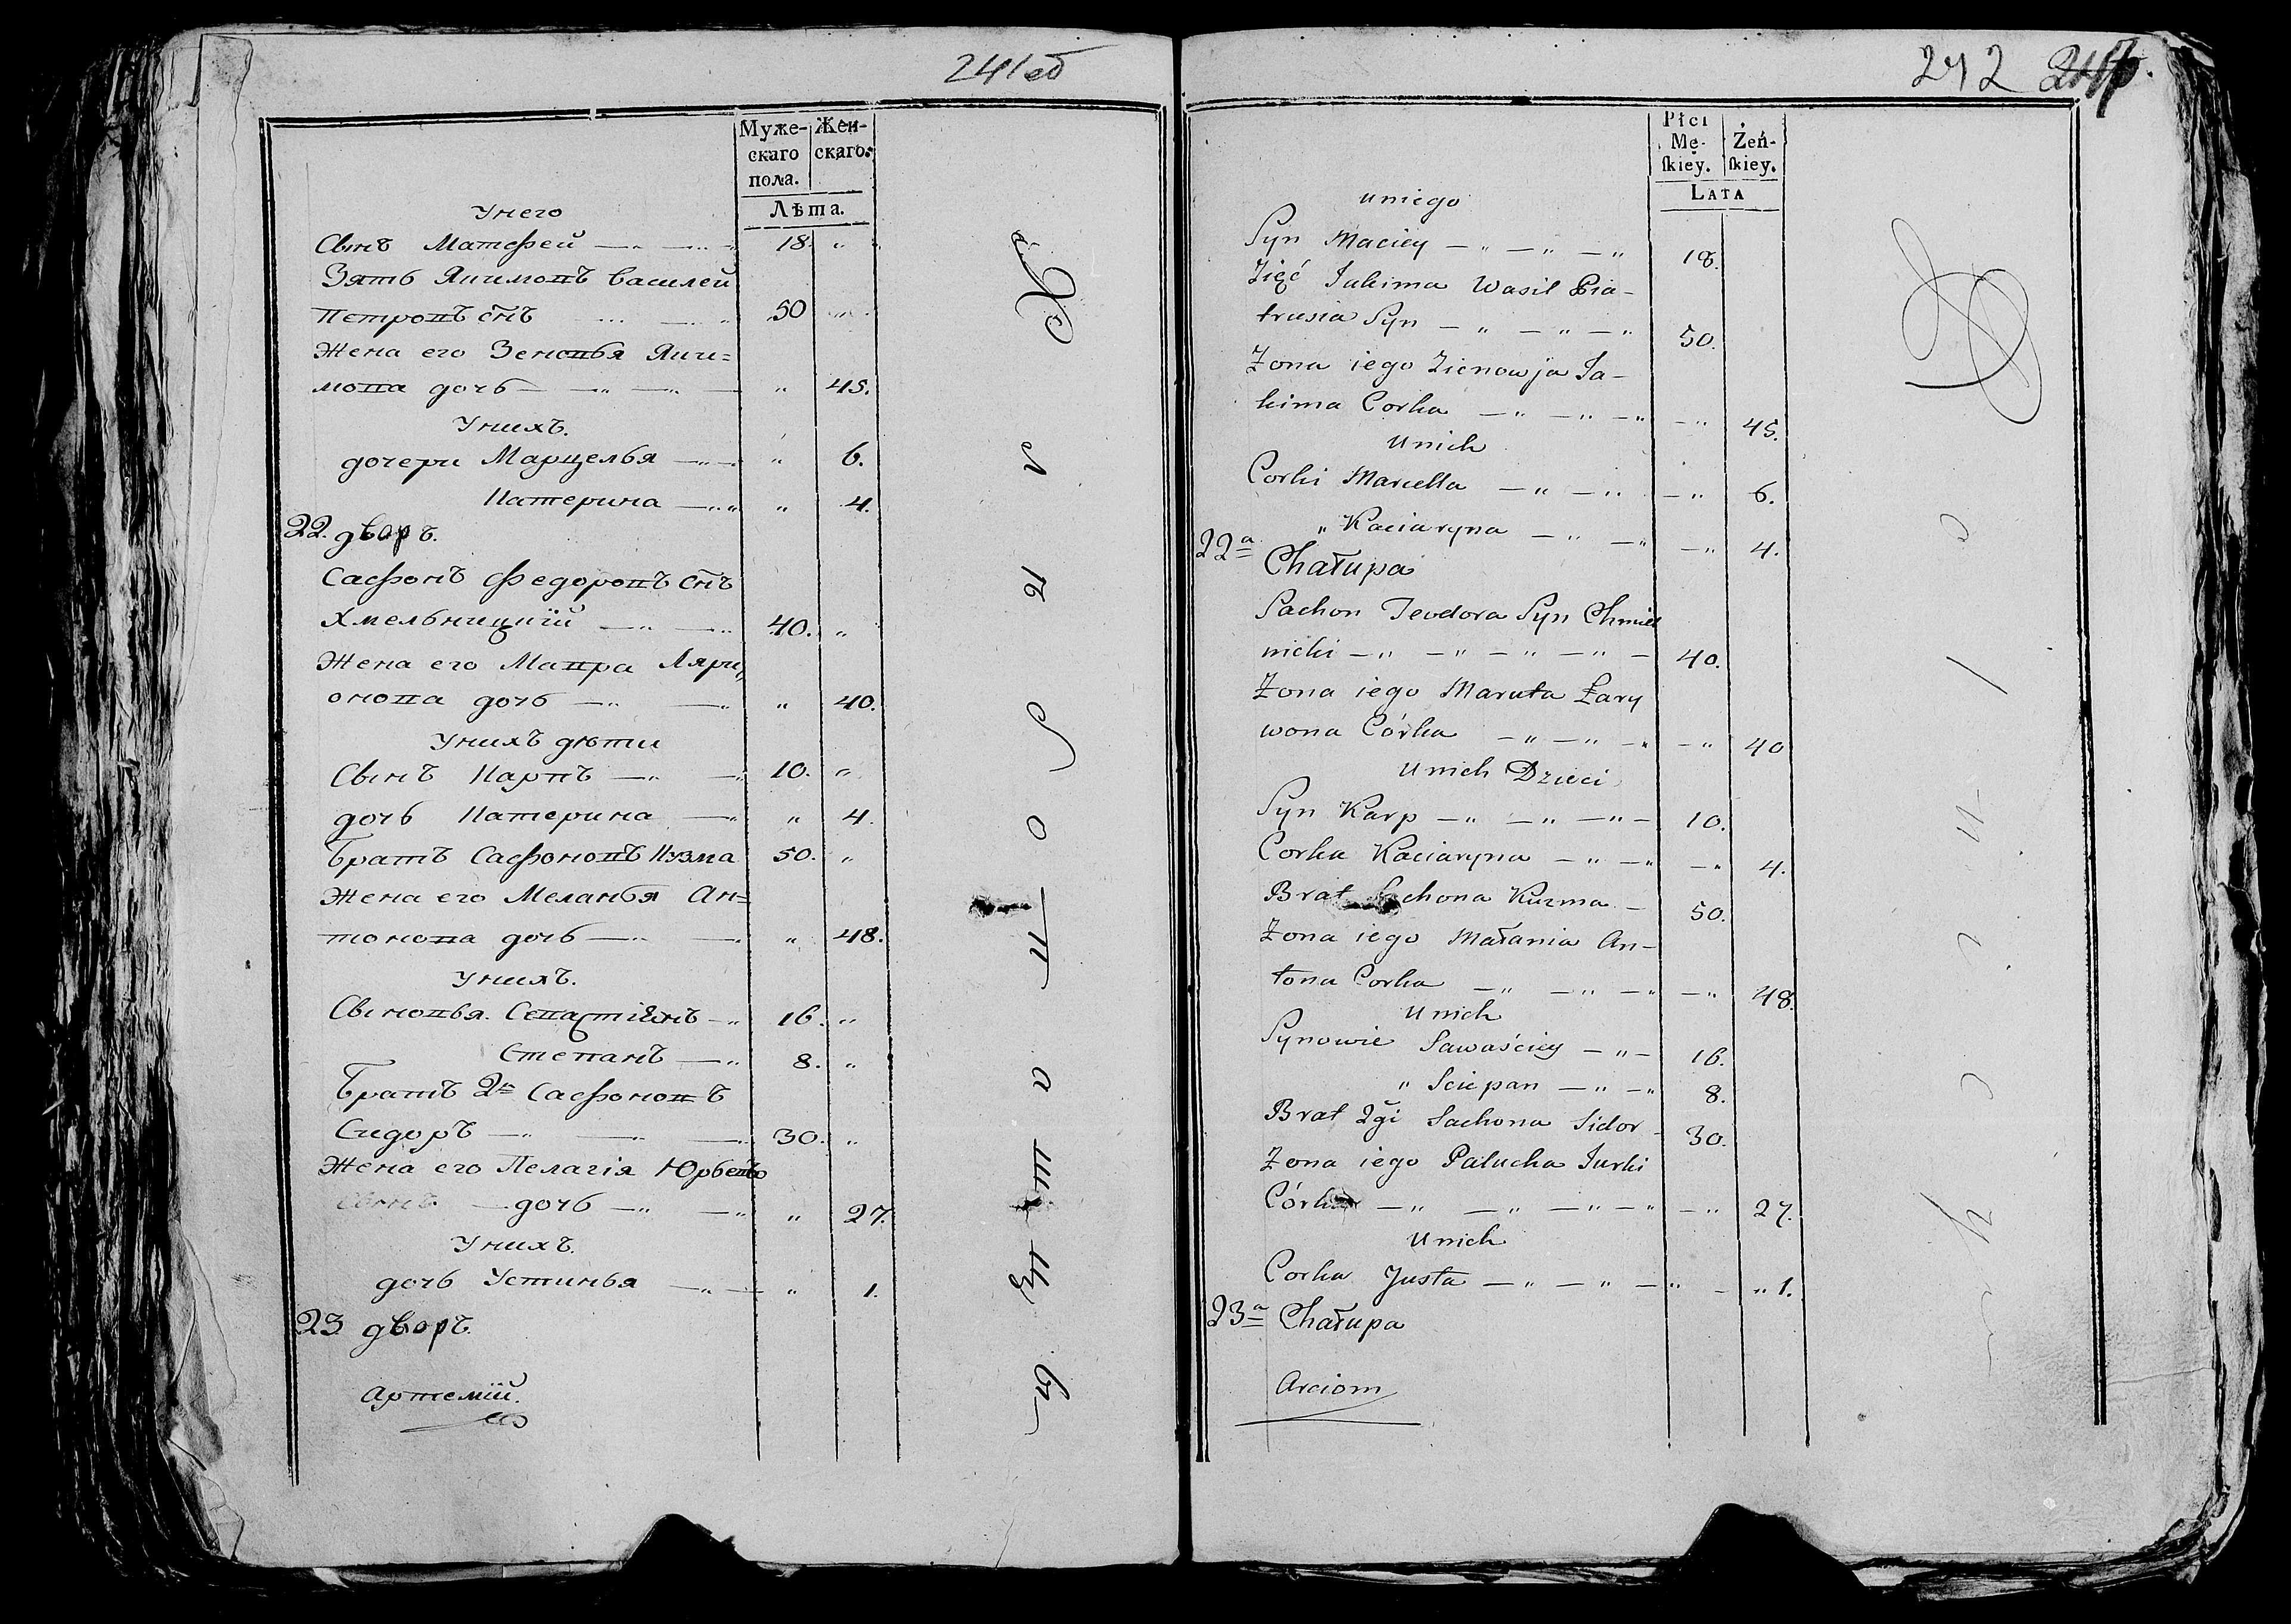 241об
Муже-
скаго
пола.
Жен-
скаго.
Лѣта.
Унего
Сынъ Матфей — „ — „ 18. „
Зять Якимовъ Василей
Петровъ снъ 50
Жена его Зеновья Яки=
мова дочь — „ — „ — „ 45.
Унихъ.
дочери Марцелья — „ — „ 6.
Катерина — „ „ 4.
22. дворъ.
Сафонъ Федоровъ снъ
Хмельницкій — „ — „ 40. „
Жена его Мавра Ляри„
онова дочь — „ — „ „ 40.
Унихъ дѣти
Сынъ Карпъ — „ — „ 10. „
дочь Катерина — „ „ 4.
Братъ Сафоновъ Кузма 50. „
Жена его Меланья Ан=
тонова дочь — „ — „ „ 48.
Унихъ.
Сыновья. Севастіянъ — „ 16. „
Степанъ — „ 8. „
Братъ 2й Сафоновъ
Сидоръ — „ — „ 30. „
Жена его Пелагія Юрьева
дочь — „ — „ „ 27.
Унихъ.
дочь Устинья — „ — „ 1.
23 дворъ.
Артемій.
242
Płci
Mę-
skiey.
Żeń-
skiey.
LATA
uniego
Syn Maciey — „ — „ — „ 18.
Zięć Jakima Wasil Pia-
trusia Syn — „ — „ — „ 50.
Żona iego Zienowja Ja-
kima Corka — „ — „ — „ — „ 45.
Unich
Corki Marcella — „ — „ — „ 6.
„ Kaciaryna — „ — „ — „ 4.
22a Chałupa
Sachon Teodora Syn Chmiel
nicki — „ — „ — „ — „ — 40.
Żona iego Maruta Łary
wona Córka — „ — „ — „ — „ 40
Unich Dzieci
Syn Karp — „ — „ — „ — 10.
Corka Kaciaryna — „ — „ — „ 4.
Brat Sachona Kuzma — 50.
Żona iego Małania An-
tona Corka — „ — „ — „ — „ 48.
Unich
Synowie Sawaściey — „ — 16.
„ Sciepan — „ — „ 8.
Brat 2gi Sachona Sidor — 30.
Żona iego Palucha Jurki
Córka — „ — „ — „ — „ — „ 27.
Unich
Corka Justa — „ — „ — „ — „ 1.
23a Chałupa
Arciom